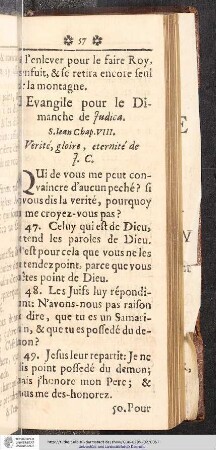 57
l'enlever pour le faire Roy,
enfuit, & se retira encore seul
la montagne.
Evangile pour le Di-
manche de Judica.
S. Iean Chap. VIII.
Verité, gloire, eternité de
J. C.
QUi de vous me peut con-
vaincre d'aucun peché? si
vous dis la verité, pourquoy
me croyez-vous pas?
47. Celuy qui est de Dieu,
tend les paroles de Dieu.
'est pour cela que vous ne les
tendez point, parce que vous
tes point de Dieu.
48. Les Juifs luy répondi-
nt: N'avons-nous pas raison
dire, que tu es un Samari-
n, & que tu es possedé du de-
mon?
49. Jesus leur repartit: Je ne
is point possedé du demon;
ais j'honore mon Pere; &
us me des-honorez.
50. Pour